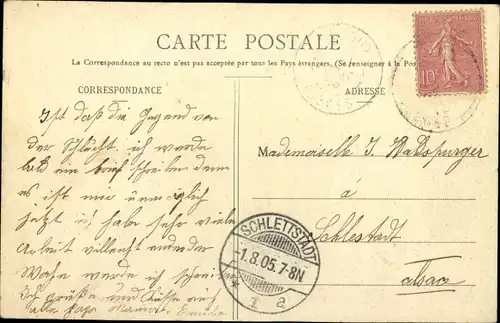 CARTE POSTALE
La Correspondance au recto n'est pas acceptée par tous les Pays étrangers. (Se renseigner à la Pos
CORRESPONDANCE
ADRESSE
10
Ist daß die Gegend von
der Schlücht. ich werde
bald ein brief schreiben denn
es ist mir unmöglich
jetzt ich habe sehr viele
Arbeit villeicht ander
Woche werde ich schreiben
Ich grüße und Küsse
alle Papa Maman Emilie
Mademoiselle J.
à
Schlestadt
Alsace
SCHLETTSTADT
1.8.05.7-8N.
* 1 a